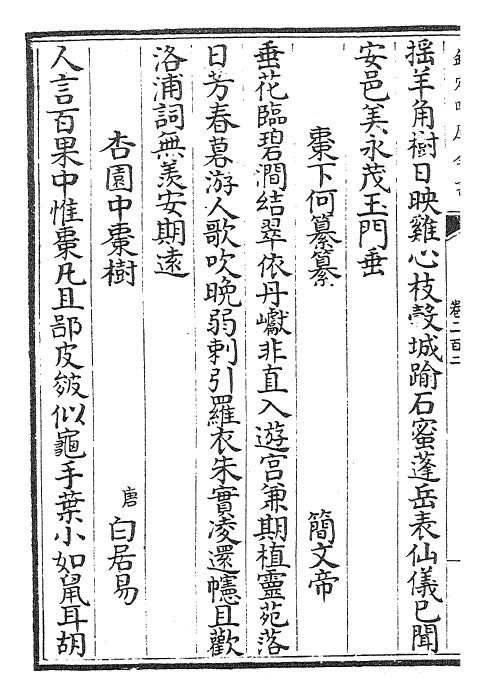 卷二百二
揺羊角樹日映雞心枝穀城踰石蜜蓬岳表仙儀已聞
安邑美永茂玉門垂
棗下何纂纂　簡文帝
垂花臨碧澗結翠依丹巘非直入遊宮兼期植靈苑落
日芳春暮游人歌吹晚弱刺引羅衣朱實凌還幰且歡
洛浦詞無羨安期遠
杏園中棗樹　唐　白居易
人言百果中惟棗凡且鄙皮皴似龜手葉小如鼠耳胡